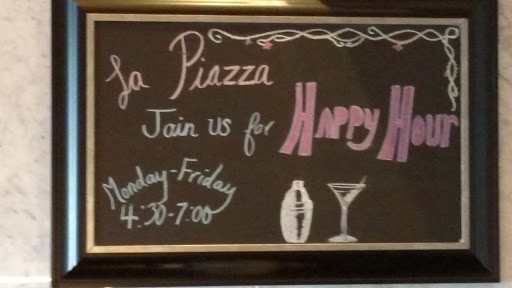 La Piazza
Join us for Happy Hour
Monday-Friday
4:30-7:00